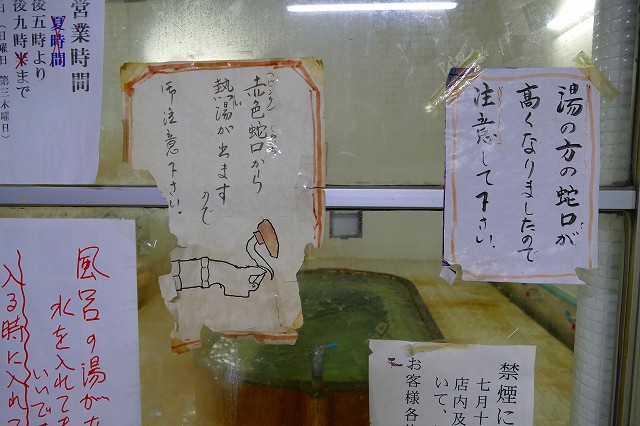 営業時間
夏時間
後五時より
後九時半まで
日(日曜日 第三木曜日)
赤色蛇口から
熱い湯が出ます
ので
御注意下さい。
湯の方の蛇口が
高くなりましたので
注意して下さい。
風呂の湯が
水を入れても
いいで
入る時に入れて
禁煙に
七月十
店内及
いて、
お客様各